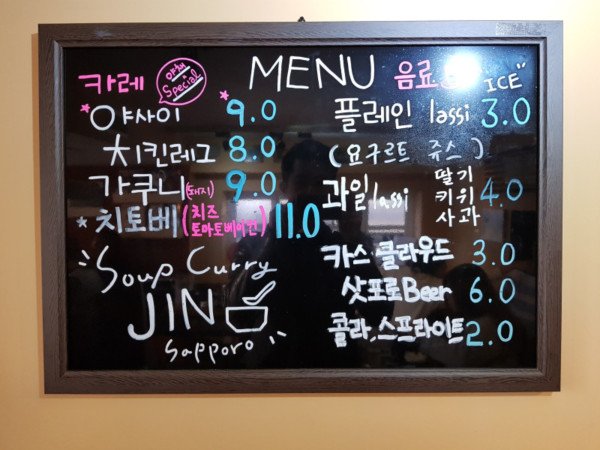 MENU
카레 야채 Special
*야사이 *9.0
치킨레그 8.0
가쿠니(돼지) 9.0
*치토베(치즈 토마토베이컨) 11.0
Soup Curry
JIN
Sapporo
음료 ICE
플레인 lassi 3.0
(요구르트 쥬스)
과일 lassi 딸기 키위 사과 4.0
카스.클라우드 3.0
삿포로Beer 6.0
콜라.스프라이트 2.0